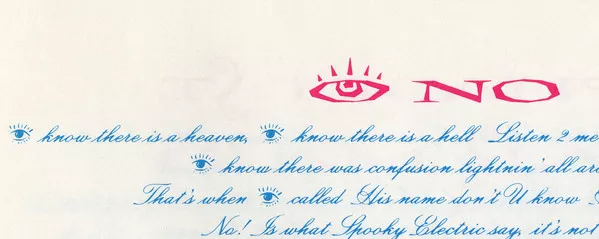 👁 NO
👁 know there is a heaven, 👁 know there is a hell Listen 2 me
👁 know there was confusion lightnin' all
That's when 👁 called His name don't U know
No! Is what Spooky Electric say, it's not